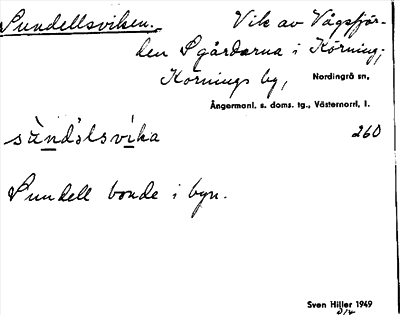 Sundellsviken. Vik av Vågsfjär-
den S gårdarna i Körning,
Körnings by, Nordingrå sn,
Ångermanl. s. doms. tg., Västernorrl. l.
sùndälsvika 260
Sundell bonde i byn.
Sven Hiller 1949